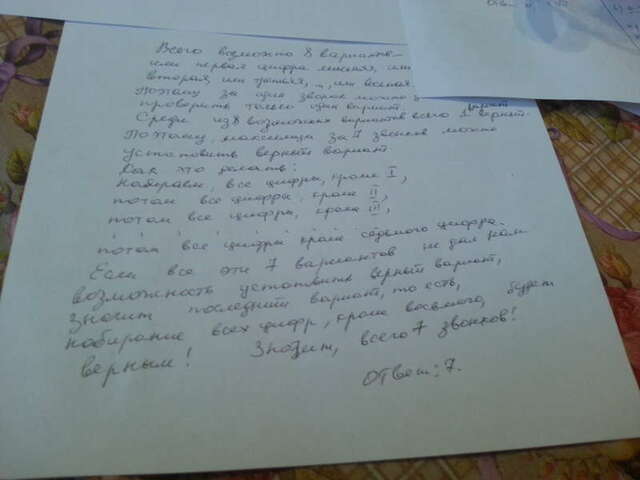 Всего возможно 8 вариантов —
или первая цифра лишняя, или
вторая, или третья, ..., или восьмая.
Поэтому за один звонок можно
проверить только один вариант.
Среди из 8 возможных вариантов всего 1 верный.
Поэтому, максимум за 7 звонков можно
установить верный вариант.
Как это делать:
Набираем, все цифры, кроме I,
потом все цифры, кроме II,
потом все цифры, кроме III,
потом все цифры кроме седьмого цифра.
Если все эти 7 вариантов не дал нам
возможность установить верный вариант,
значит последний вариант, то есть,
набирание всех цифр, кроме восьмого, будет
верным! Значит, всего 7 звонков!
Ответ: 7.